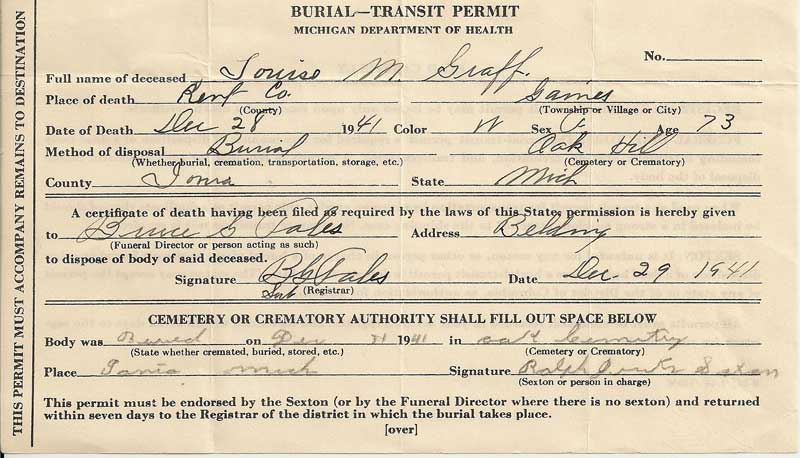 BURIAL—TRANSIT PERMIT
MICHIGAN DEPARTMENT OF HEALTH
No.
Full name of deceased Louise M. Graff.
Place of death Kent Co. Gaines
(County) (Township or Village or City)
Date of Death Dec 28 1941 Color W Sex F Age 73
Method of disposal Burial Oak Hill
(Whether burial, cremation, transportation, storage, etc.) (Cemetery or Crematory)
County Ionia State Mich
A certificate of death having been filed as required by the laws of this State, permission is hereby given
to Bruce G Fales Address Belding
(Funeral Director or person acting as such)
to dispose of body of said deceased.
Signature BG Fales Date Dec 29 1941
(Registrar)
CEMETERY OR CREMATORY AUTHORITY SHALL FILL OUT SPACE BELOW
Body was Buried on Dec 31 1941 in Cemetry
(State whether cremated, buried, stored, etc.) (Cemetery or Crematory)
Place Ionia Mich Signature Ralph Sexton
(Sexton or person in charge)
This permit must be endorsed by the Sexton (or by the Funeral Director where there is no sexton) and returned
within seven days to the Registrar of the district in which the burial takes place.
[over]
THIS PERMIT MUST ACCOMPANY REMAINS TO DESTINATION